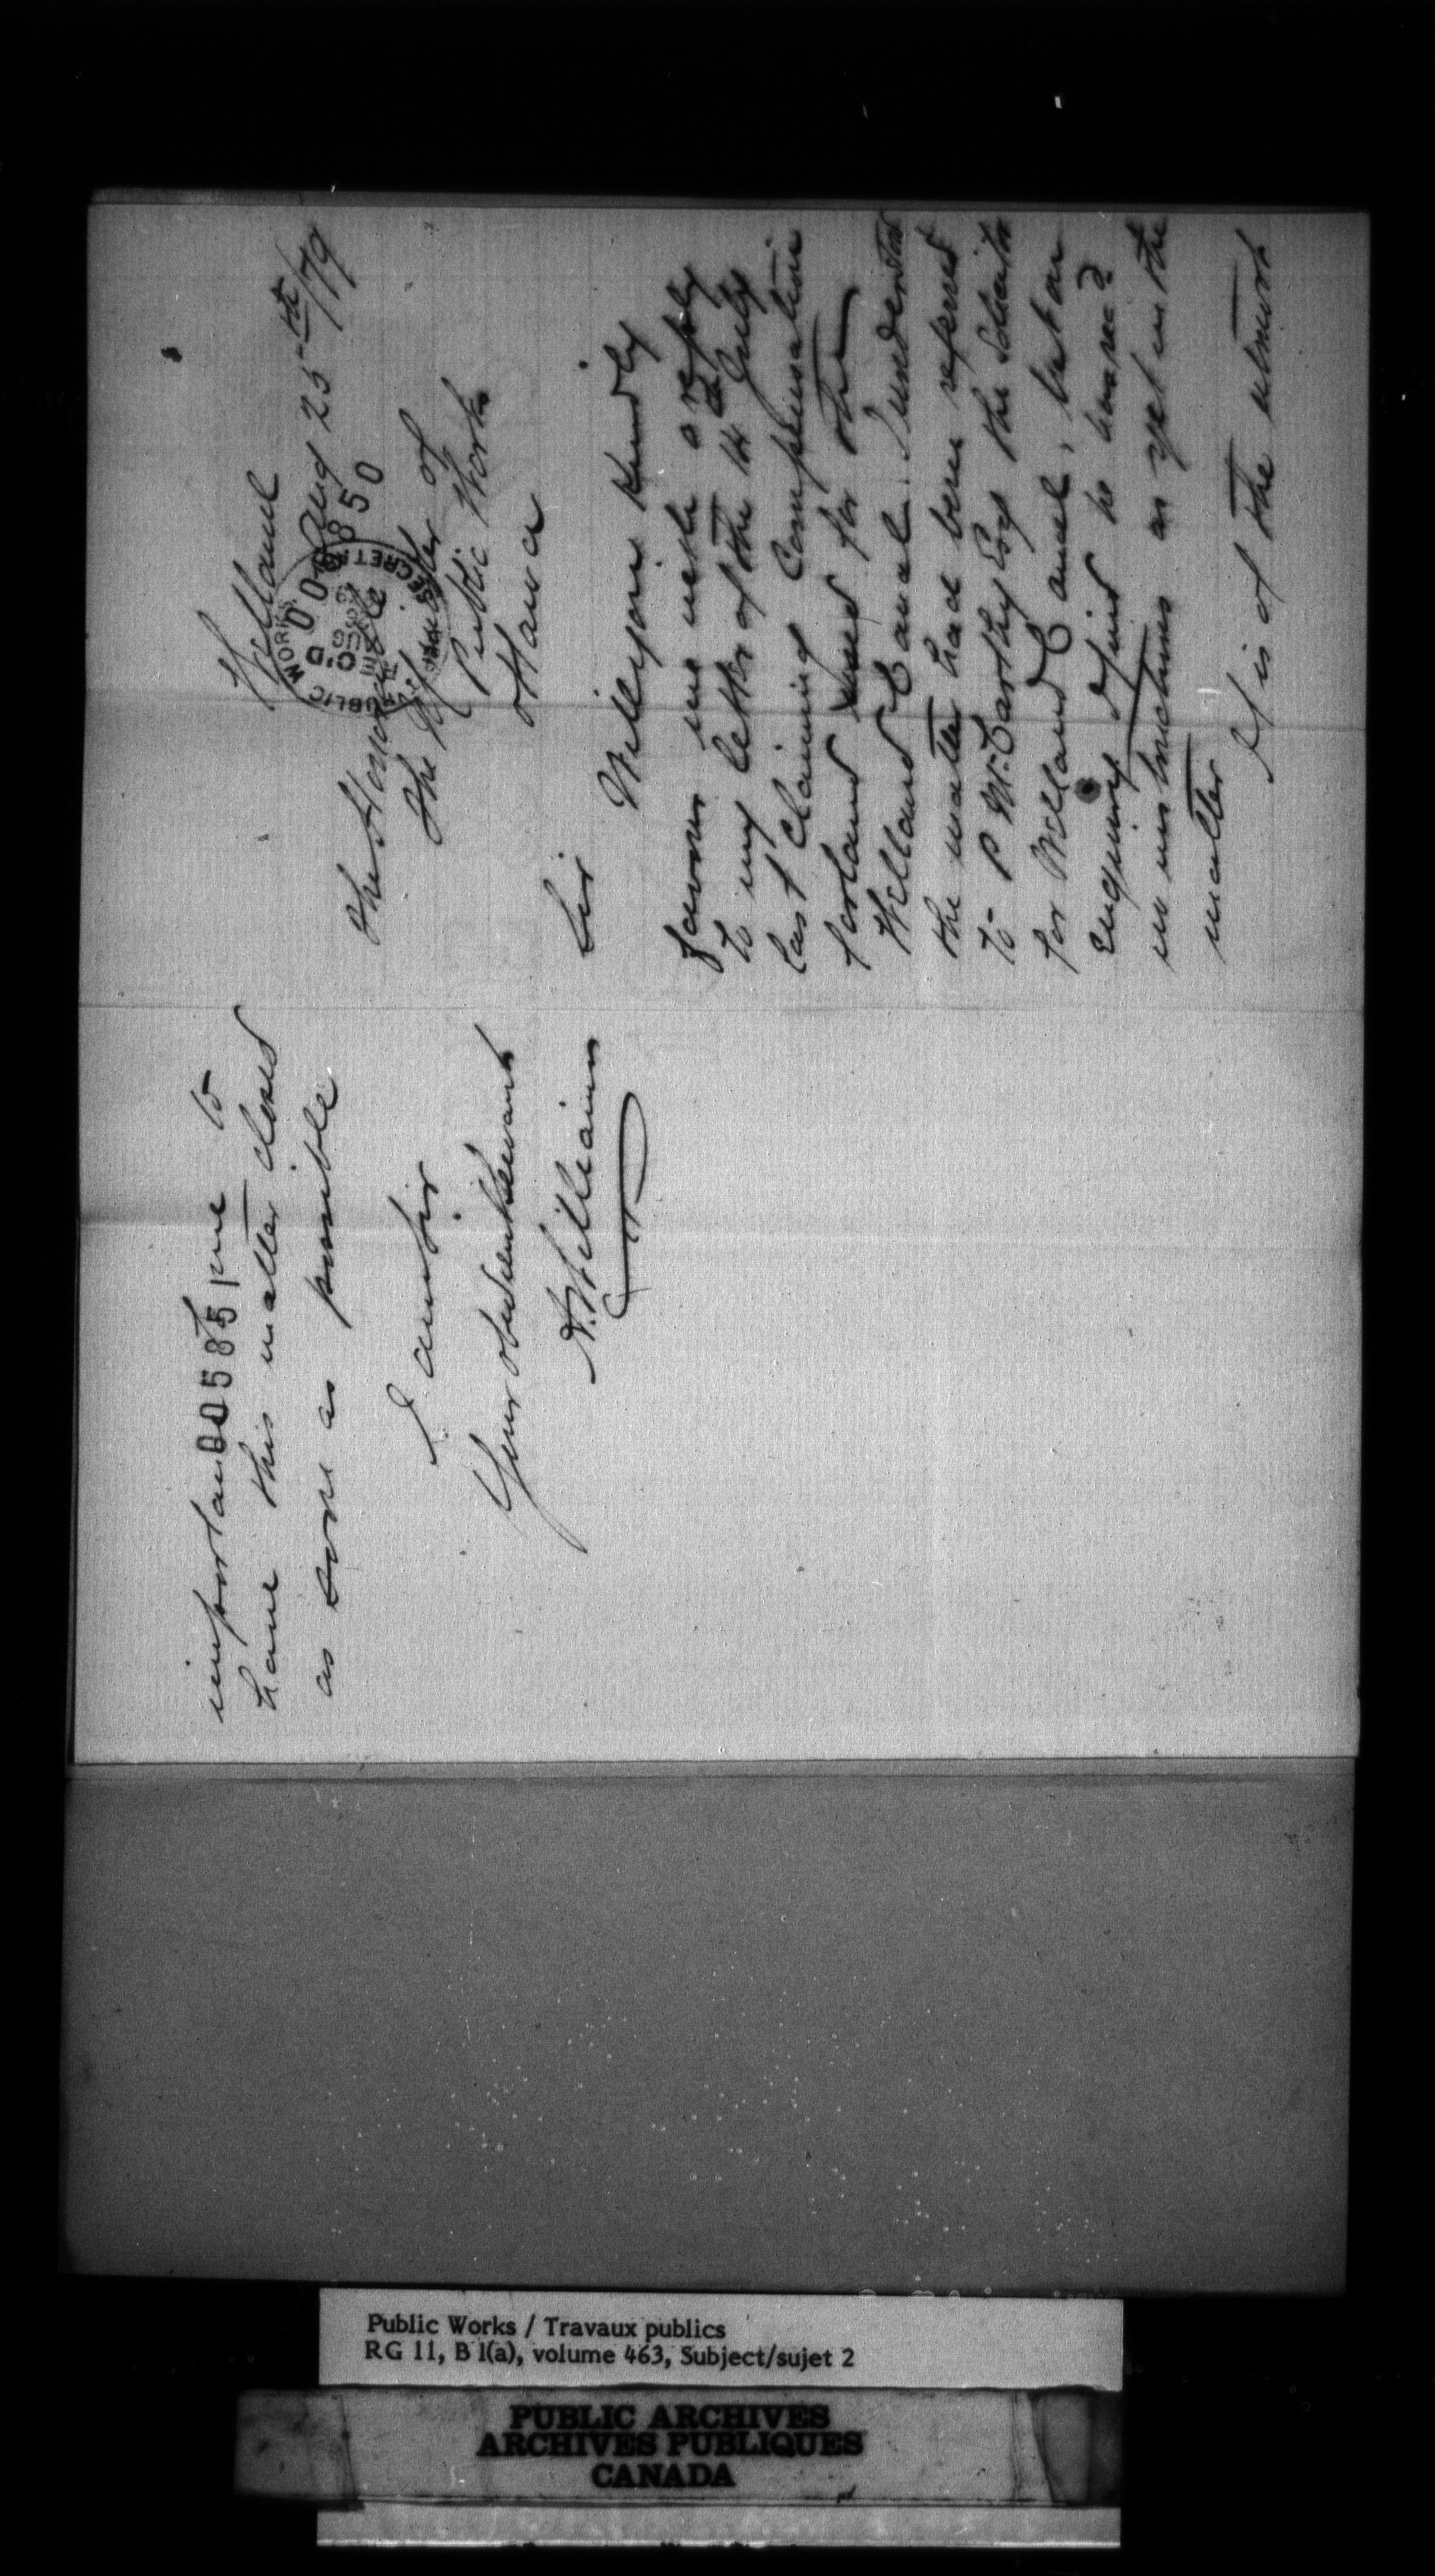 Welland
Aug 25th/79
00 850
PUBLIC WORKS
REC'D
AUG
SECRETARY
The Honorable
The Minister of
Public Works
Ottawa
Sir
Will you kindly
favour me with a reply
to my letter of the 14th July
last claiming compensation
for land used for the
Welland Canal. I understood
the matter had been referred
to P McCarthy Esq the Solicitor
for Welland Canal, but on
enquiring I find he has rec'd
no instructions as yet in the
matter
It is of the utmost
importance to me to
00585
have this matter closed
as soon as possible
I am Sir
Your obedient Servant
Williams
Public Works / Travaux publics
RG 11, B 1(a), volume 463, Subject/sujet 2
PUBLIC ARCHIVES
ARCHIVES PUBLIQUES
CANADA